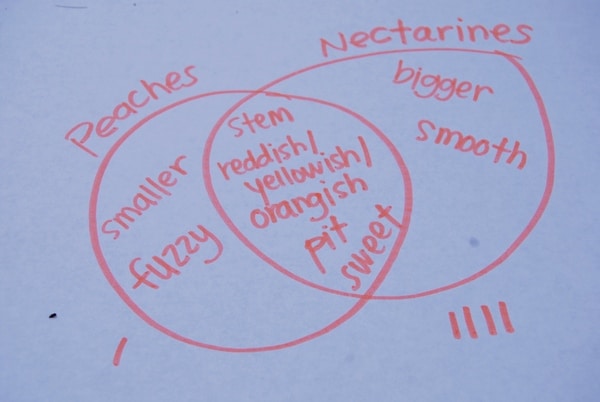 Peaches
Nectarines
smaller
fuzzy
stem
reddish/
yellowish/
orangish
pit
sweet
bigger
smooth